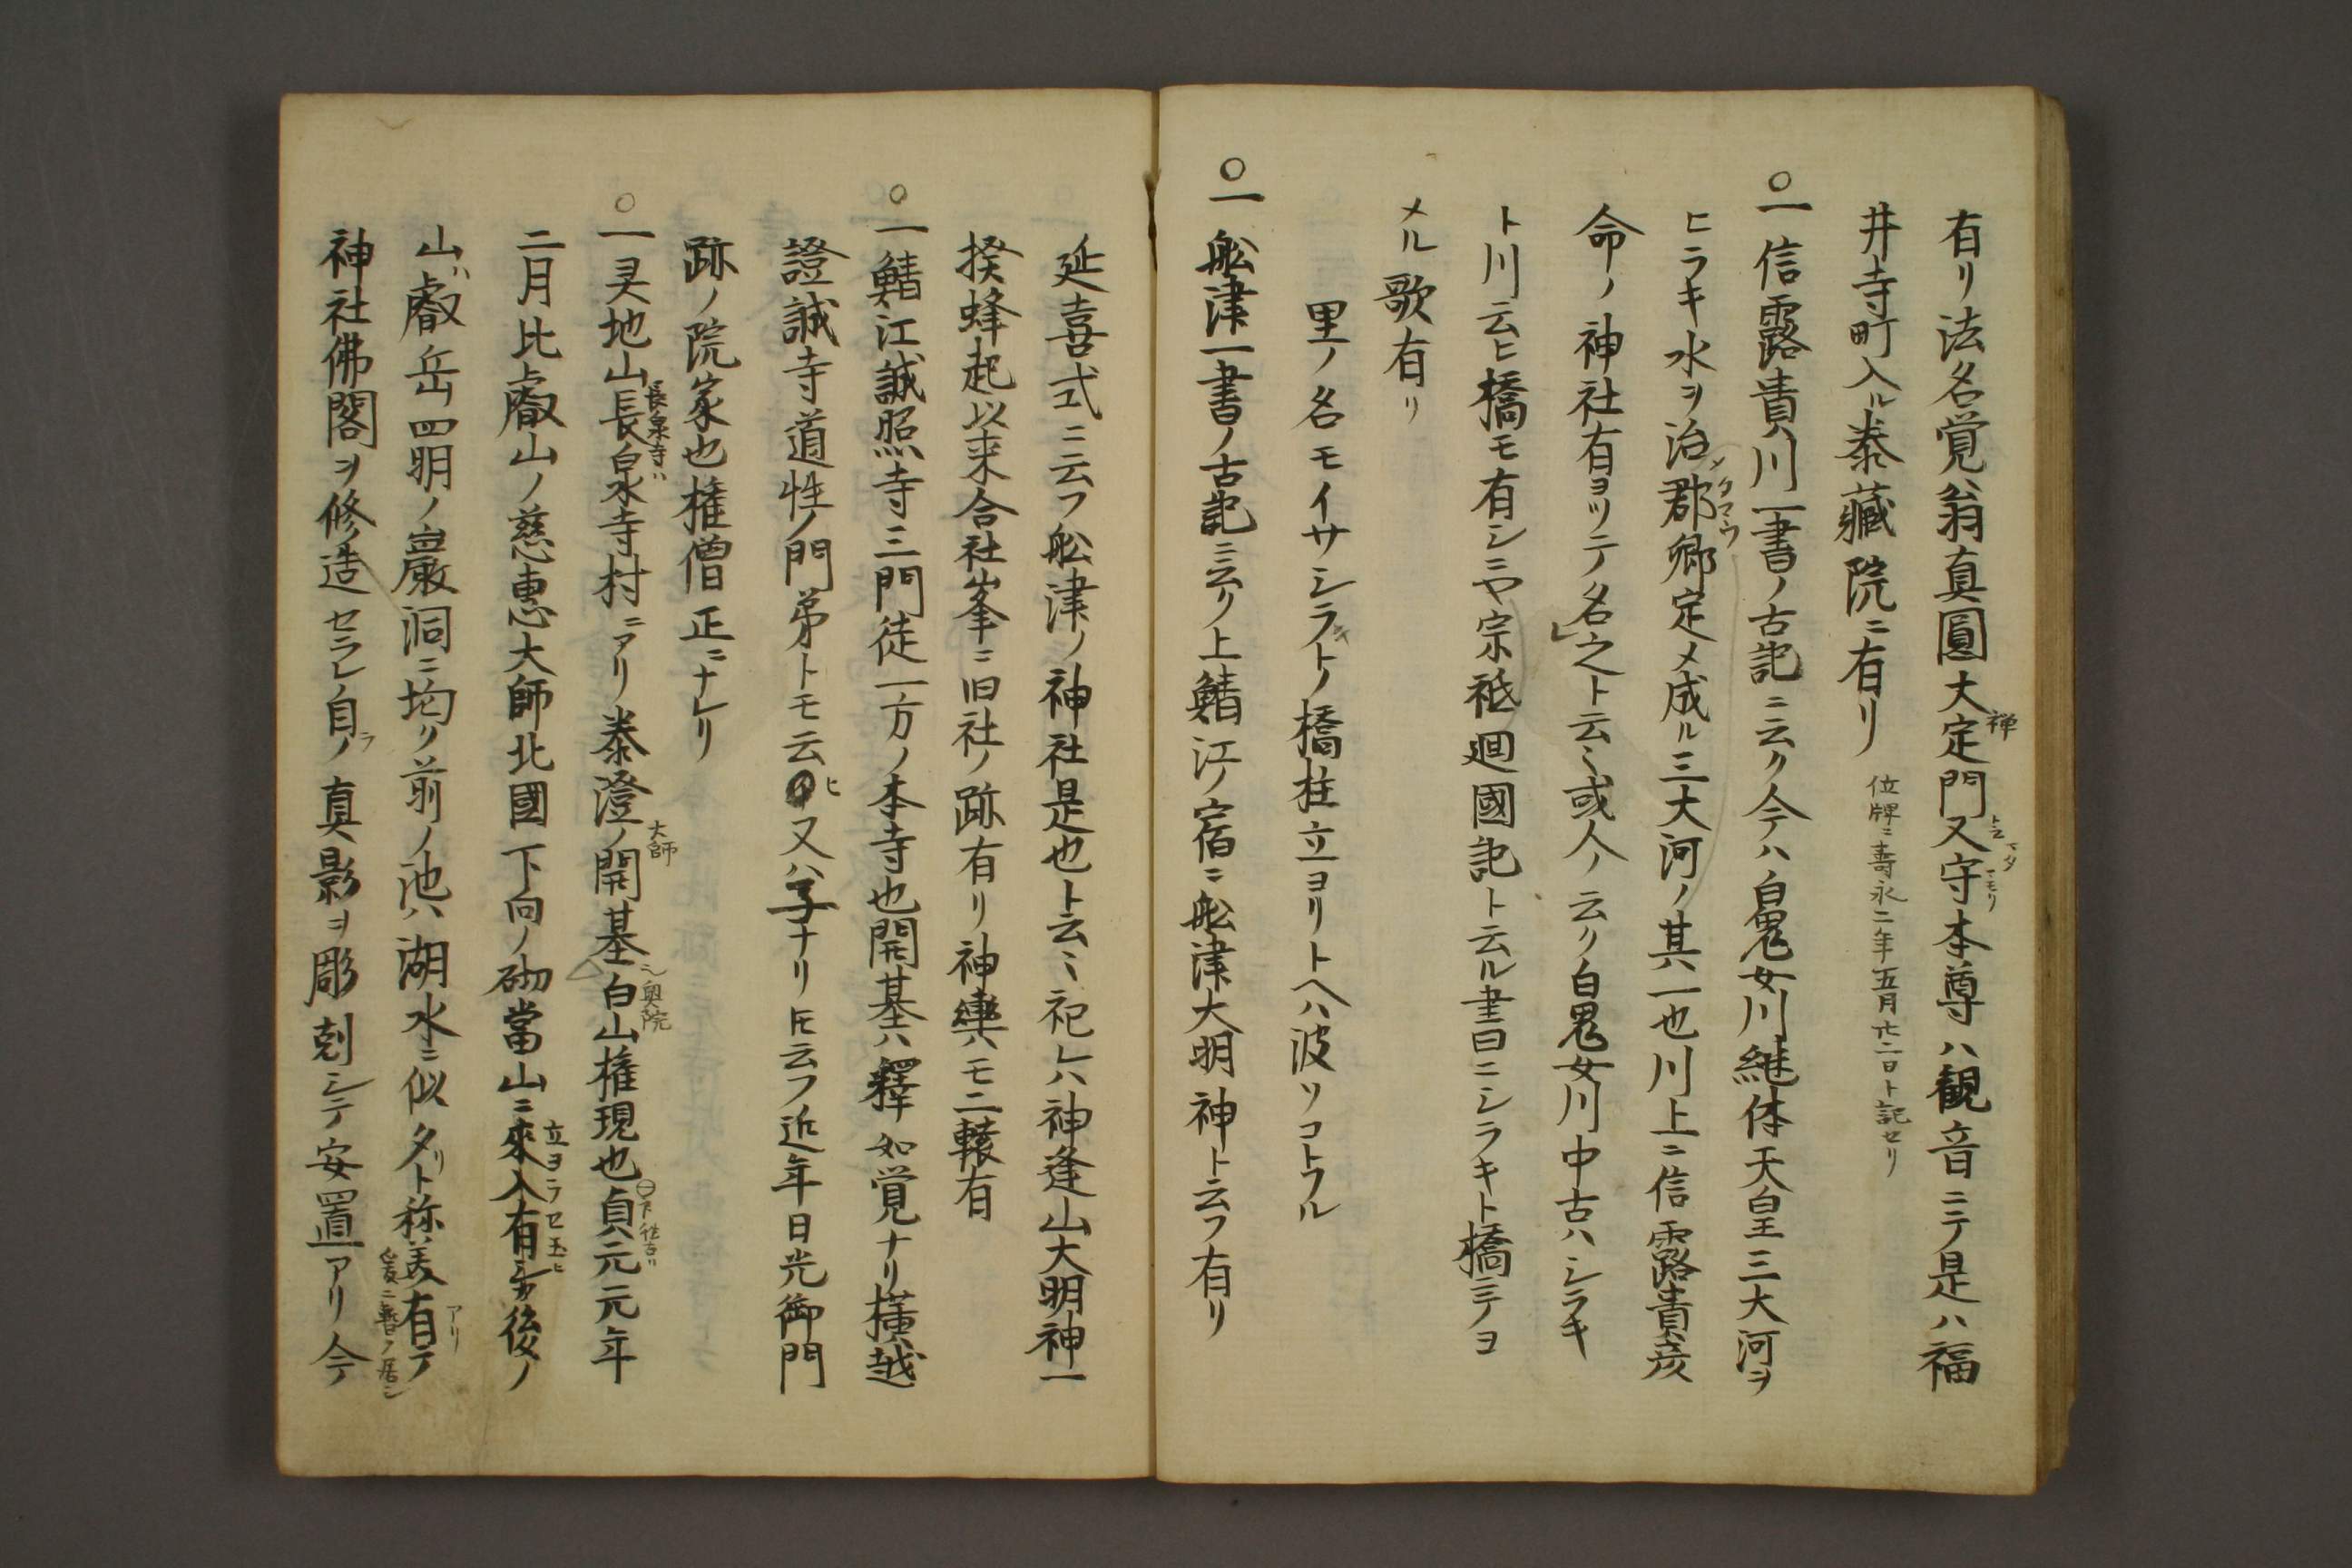 有リ法名覚翁真圓大禅定門ト云又守本尊ハ観音ニテ是ハ福
井寺町入ル泰蔵院ニ有リ 位牌ニ壽永二年五月廿二日ト記セリ
○一 信露貴川一書ノ古記ニ云ク今ハ白鬼女川継体天皇三大河ヲ
ヒラキ水ヲ治メ郡郷定メ成ル三大河ノ其一也川上ニ信露貴彦
命ノ神社有ヨツテ名之ト云ミ或人ノ云ク白鬼女川中古ハシラキ
ト川云ヒ橋モ有シニや宗祇廻國記ト云ル書曰ニシラキト橋ニテヨ
メル歌有リ
里ノ名モイサシラキトノ橋柱立ヨリトヘハ波ソコトフル
○一 舩津一書ノ古記ニ云ク上鯖江ノ宿ニ舩津大明神ト云フ有リ
延喜式ニ云フ舩津ノ神社是也ト云ミ祀ルハ神逢山大明神一
揆蜂起以来合社峯ニ旧社ノ跡有リ神輿モ二轅有
○一 鯖江誠照寺三門徒一方ノ本寺也開基ハ釋如覚ナリ横越
證誠寺道性ノ門弟トモ云ヒ又ハ子ナリトモ云フ近年日光御門
跡ノ院家也権僧正ニナレリ
○一 灵地山長泉寺ハ長泉寺村ニアリ泰澄大師ノ開基シ奥院白山権現也貞元元年
二月比叡山ノ慈惠大師北國下向ノ砌當山ニ來入有シカ後ノ
立ヨラセ玉ヒ
山ハ叡岳四明ノ巖洞ニ均ク前ノ池ハ湖水ニ似タリト称美有テ
爰ニ暫ノ居シ
神社佛閣ヲ修造セラレ自ラノ真影ヲ彫剋シテ安置アリ今